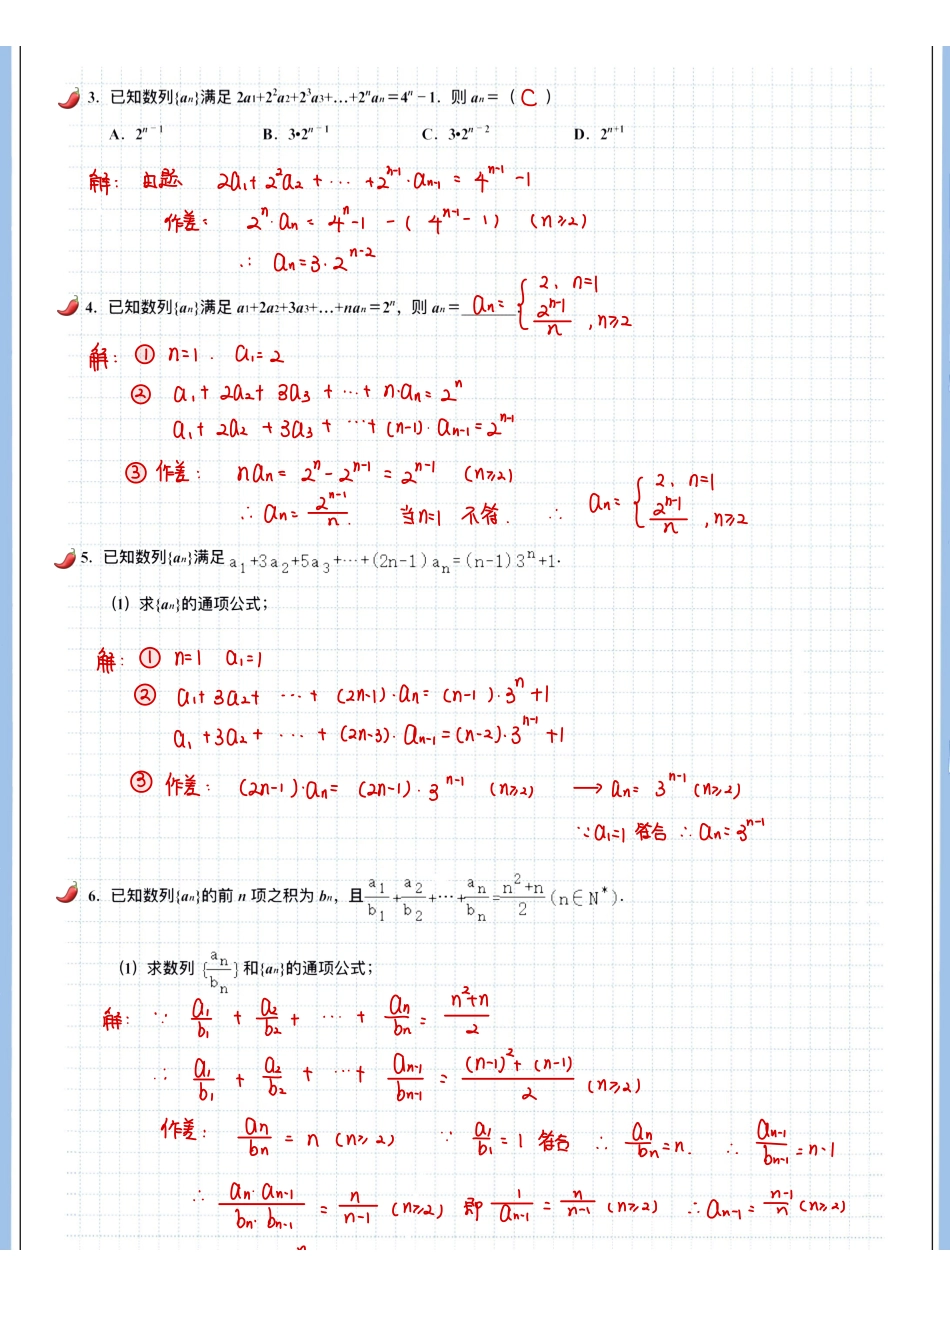 3. 已知数列{an}满足 2a1+2²a2+2³a3+…+2ⁿan=4ⁿ-1. 则 an=( C )
A. 2ⁿ⁻¹ B. 3•2ⁿ⁻¹ C. 3•2ⁿ⁻² D. 2ⁿ⁺¹
解: 由题 2a₁+2²a₂+⋯+2ⁿ⁻¹·aₙ₋₁=4ⁿ⁻¹-1
作差: 2ⁿ·aₙ=4ⁿ-1-(4ⁿ⁻¹-1) (n≥2)
∴ aₙ=3·2ⁿ⁻²
4. 已知数列{an}满足 a1+2a2+3a3+…+nan=2ⁿ, 则 an= aₙ={2, n=1
2ⁿ⁻¹/n, n≥2
解: ① n=1. a₁=2
② a₁+2a₂+3a₃+⋯+n·aₙ=2ⁿ
a₁+2a₂+3a₃+⋯+(n-1)·aₙ₋₁=2ⁿ⁻¹
③ 作差: naₙ=2ⁿ-2ⁿ⁻¹=2ⁿ⁻¹ (n≥2)
∴ aₙ=2ⁿ⁻¹/n. 当n=1 不符. ∴ aₙ={2, n=1
2ⁿ⁻¹/n, n≥2
5. 已知数列{an}满足 a₁+3a₂+5a₃+⋯+(2n-1)aₙ=(n-1)3ⁿ+1.
(1) 求{an}的通项公式;
解: ① n=1 a₁=1
② a₁+3a₂+⋯+(2n-1)·aₙ=(n-1)·3ⁿ+1
a₁+3a₂+⋯+(2n-3)·aₙ₋₁=(n-2)·3ⁿ⁻¹+1
③ 作差: (2n-1)·aₙ=(2n-1)·3ⁿ⁻¹ (n≥2) → aₙ=3ⁿ⁻¹(n≥2)
∵a₁=1 符合 ∴ aₙ=3ⁿ⁻¹
6. 已知数列{an}的前 n 项之积为 bn, 且 a₁/b₁+a₂/b₂+⋯+aₙ/bₙ=(n²+n)/2 (n∈N*).
(1) 求数列 {aₙ/bₙ} 和{an}的通项公式;
解: ∵ a₁/b₁+a₂/b₂+⋯+aₙ/bₙ=(n²+n)/2
∴ a₁/b₁+a₂/b₂+⋯+aₙ₋₁/bₙ₋₁=((n-1)²+(n-1))/2 (n≥2)
作差: aₙ/bₙ=n (n≥2) ∵ a₁/b₁=1 符合 ∴ aₙ/bₙ=n. ∴ aₙ₋₁/bₙ₋₁=n-1
∴ (aₙ·aₙ₋₁)/(bₙ·bₙ₋₁)=n/(n-1) (n≥2) 即 1/aₙ₋₁=n/(n-1) (n≥2) ∴aₙ₋₁=(n-1)/n (n≥2)